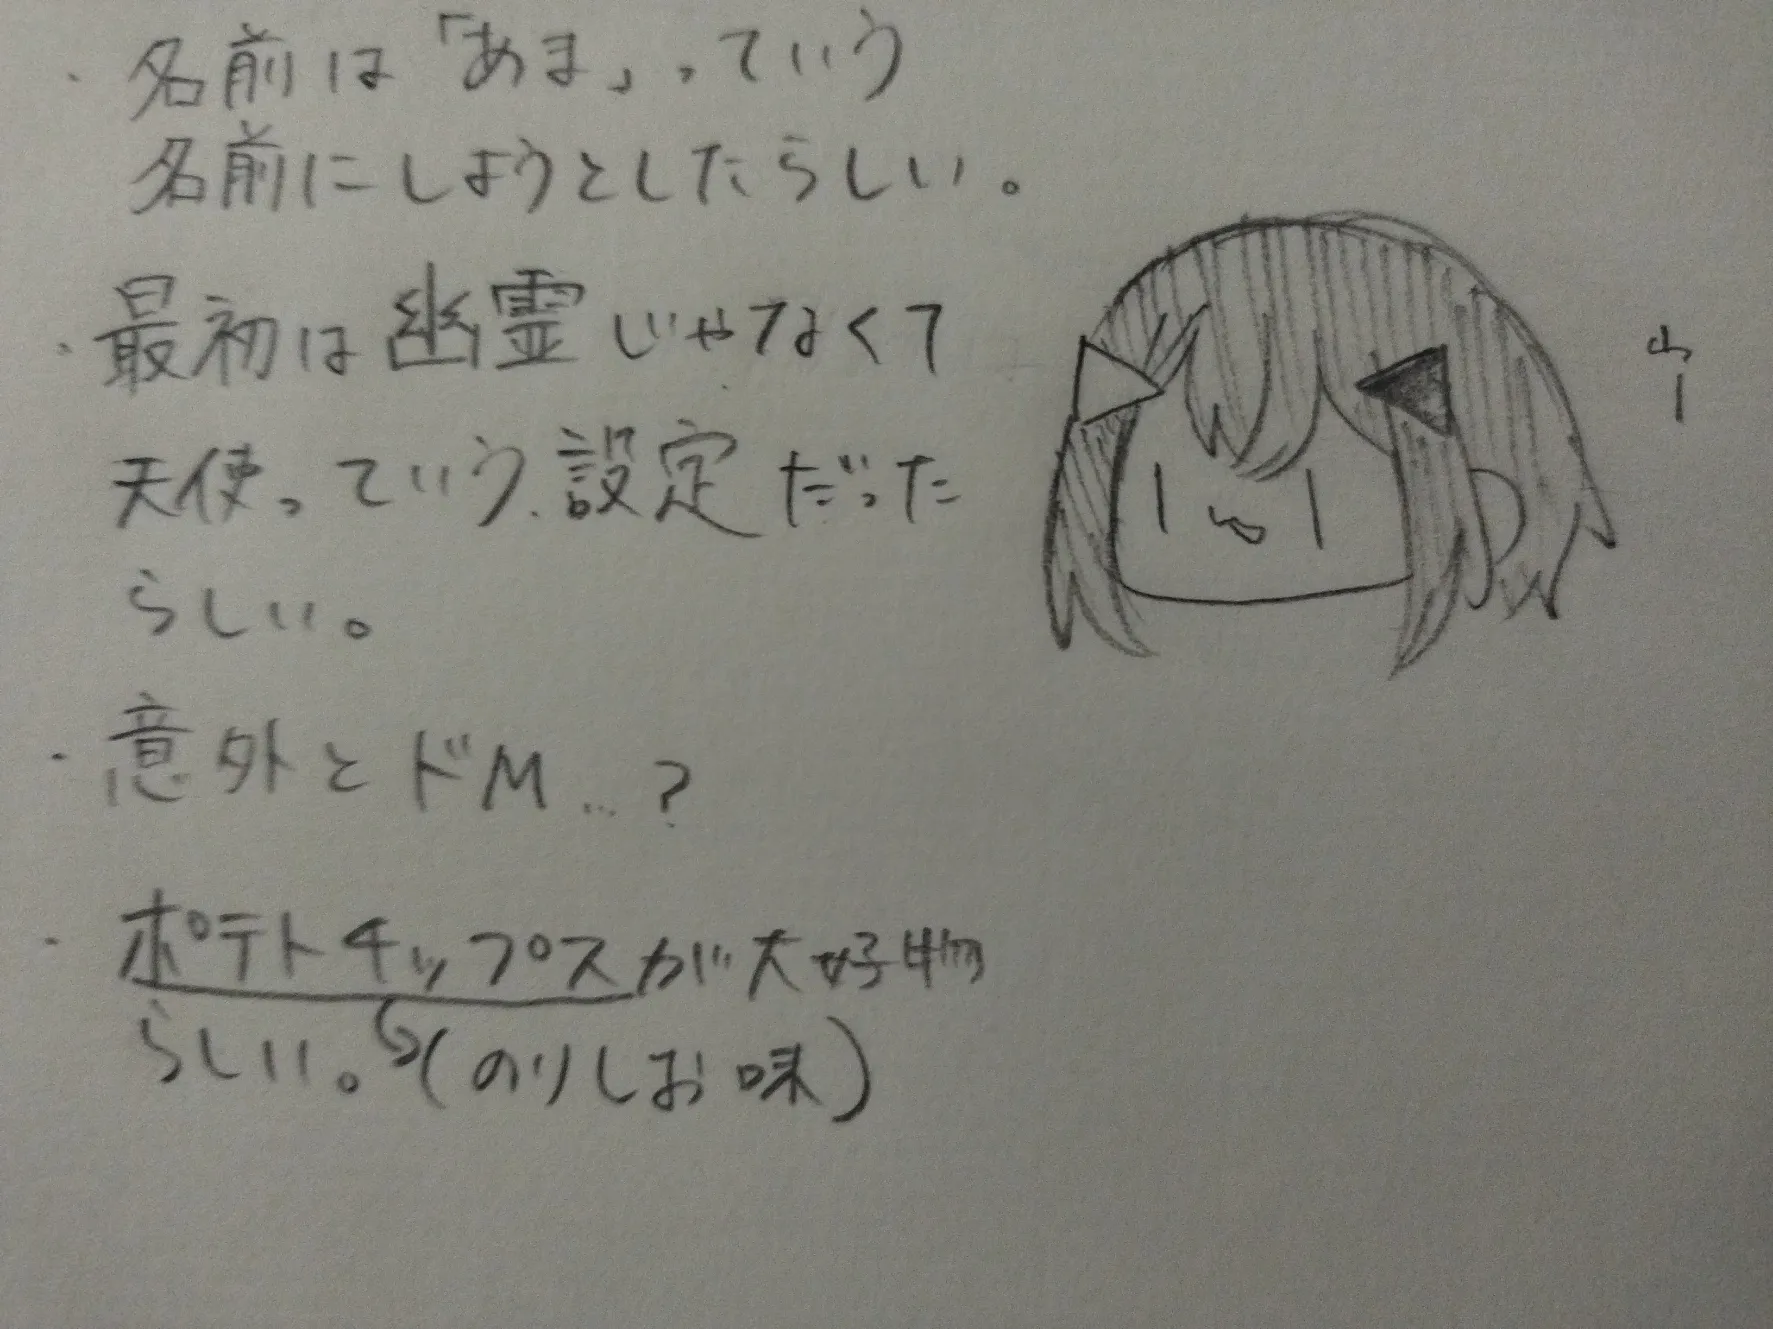 ・名前は「あま」っていう
名前にしようとしたらしい。
・最初は幽霊じゃなくて
天使っていう設定だった
らしい。
・意外とドM…?
・ポテトチップスが大好物
らしい。(のりしお味)